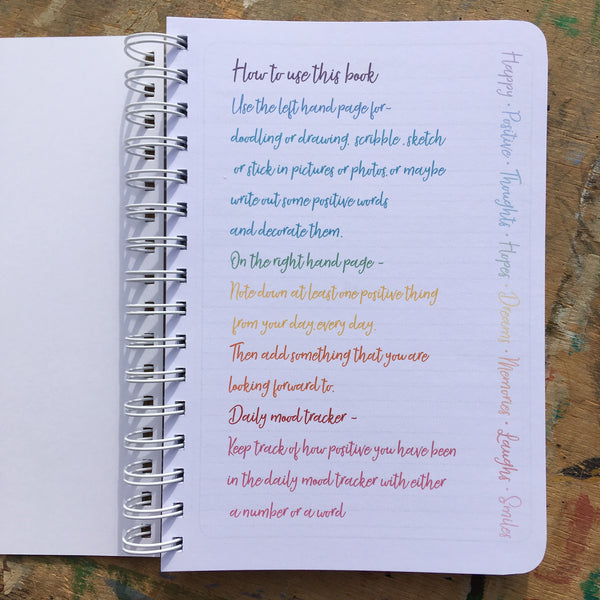 How to use this book
Use the left hand page for-
doodling or drawing, scribble, sketch
or stick in pictures or photos, or maybe
write out some positive words
and decorate them.
On the right hand page -
Note down at least one positive thing
from your day, every day.
Then add something that you are
looking forward to.
Daily mood tracker -
Keep track of how positive you have been
in the daily mood tracker with either
a number or a word
Happy • Positive • Thoughts • Hopes • Dreams • Memories • Laughs • Smiles